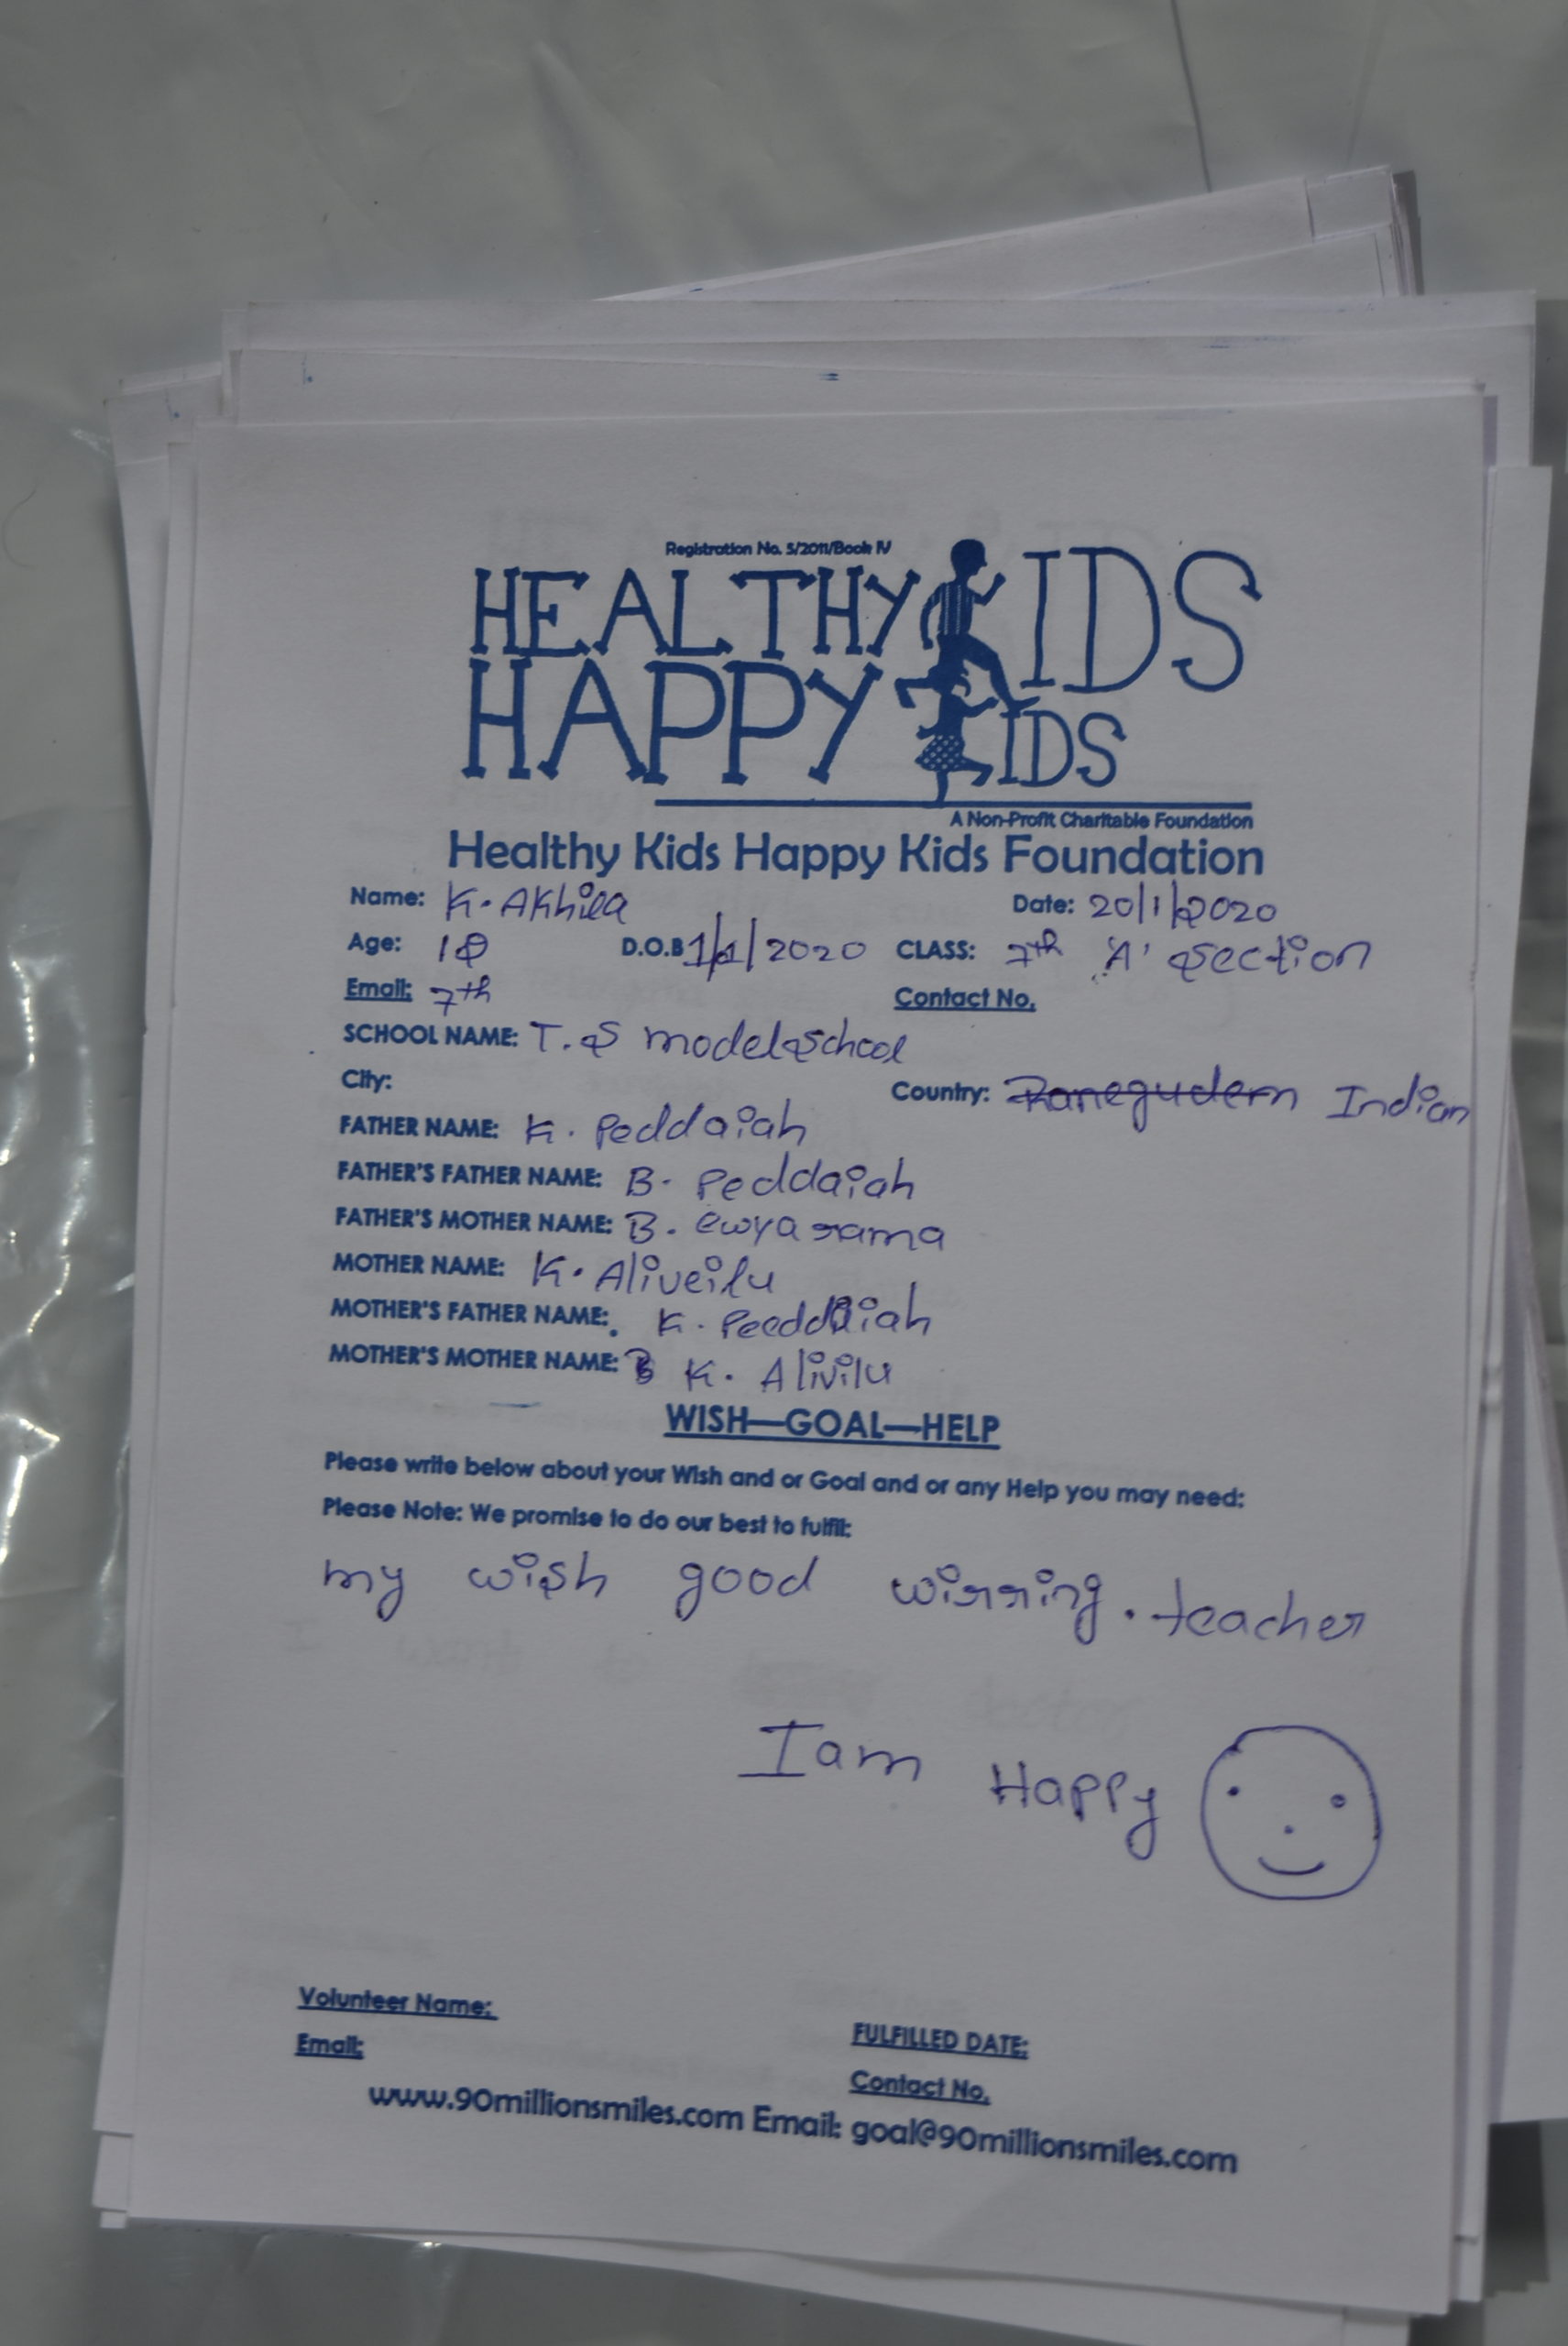 Registration No. 5/2011/Book IV
HEALTHY KIDS
HAPPY KIDS
A Non-Profit Charitable Foundation
Healthy Kids Happy Kids Foundation
Name: K. Akhila Date: 20/1/2020
Age: D.O.B 1/1/2020 CLASS: 7th 'A' section
Email: 7th Contact No.
SCHOOL NAME: T.S model school
City: Country: Indian
FATHER NAME: K. Peddaiah
FATHER'S FATHER NAME: B. Peddaiah
FATHER'S MOTHER NAME: B.
MOTHER NAME: K. Aliveilu
MOTHER'S FATHER NAME: K. Peeddaiah
MOTHER'S MOTHER NAME: K. Alivilu
WISH—GOAL—HELP
Please write below about your Wish and or Goal and or any Help you may need:
Please Note: We promise to do our best to fulfil:
my wish good winning. teacher
I am Happy
Volunteer Name: FULFILLED DATE:
Email: Contact No.
www.90millionsmiles.com Email: goal@90millionsmiles.com